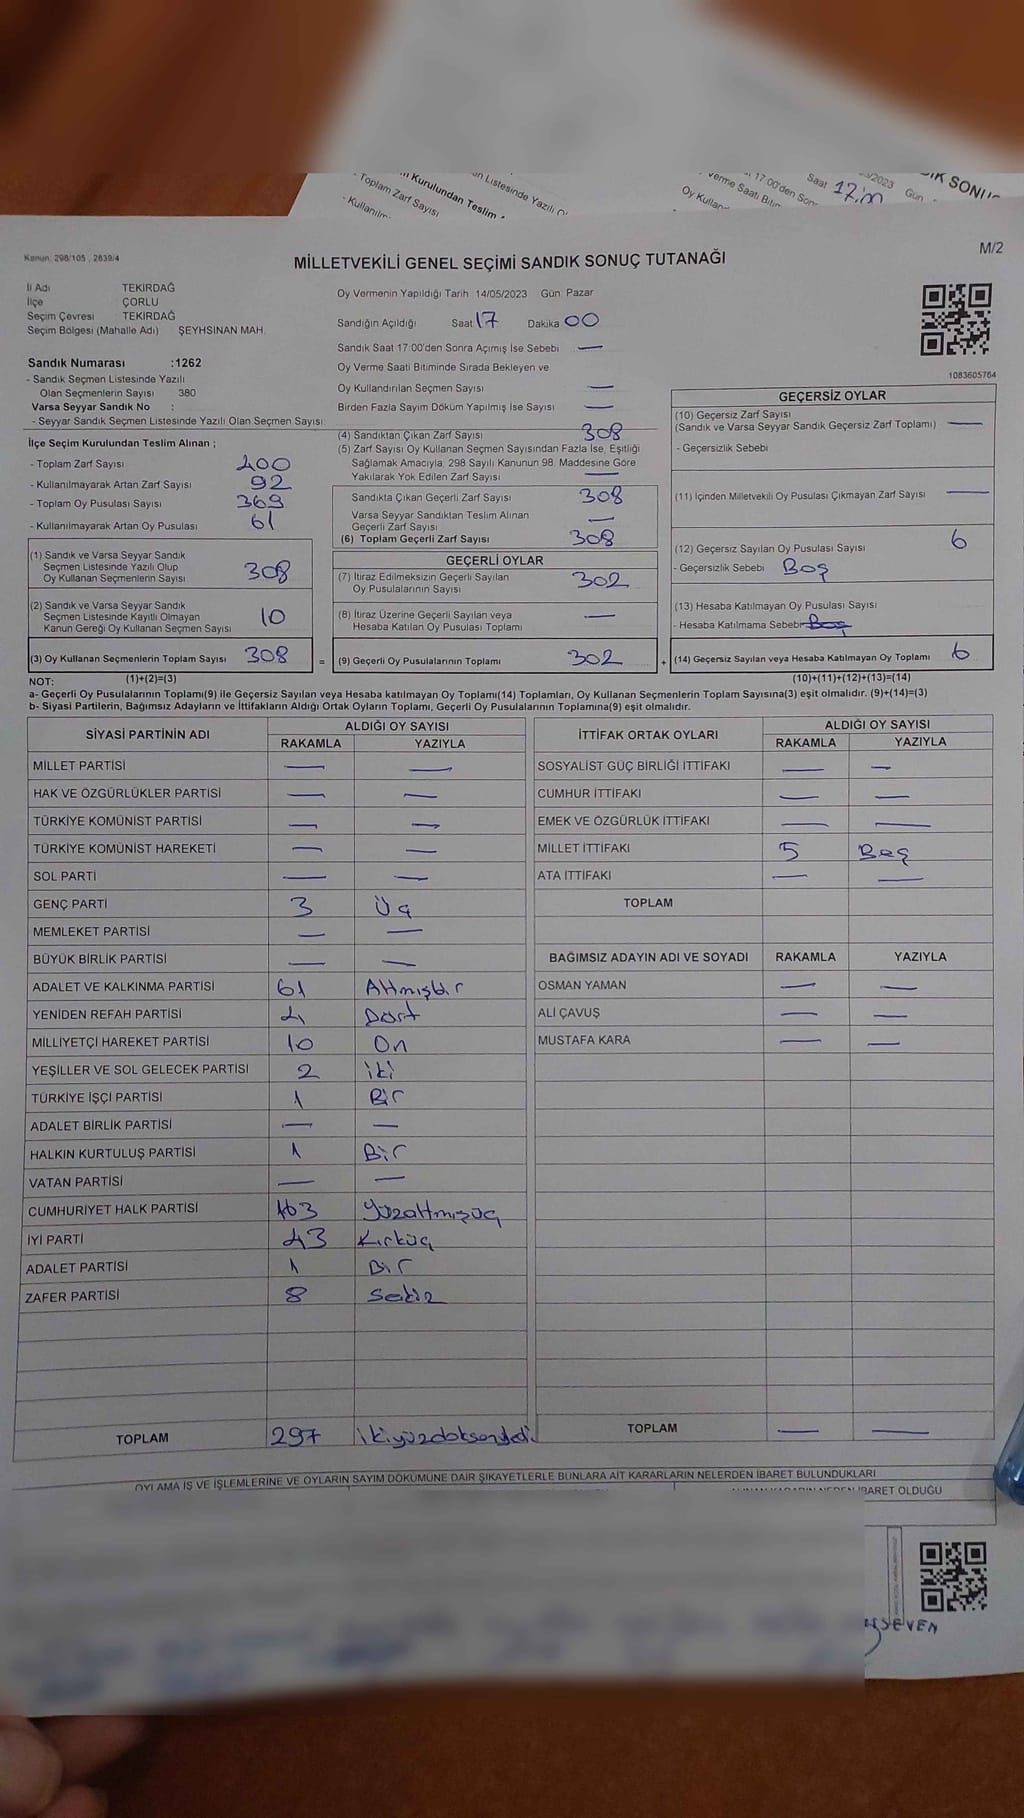 Toplam Zarf Sayısı
Kurulundan Teslim
Verme Saati
17:00'den Son
Saat 17,00
/2023 Gün
IK SONUÇ
Kanun, 298/105 , 2839/4
MİLLETVEKİLİ GENEL SEÇİMİ SANDIK SONUÇ TUTANAĞI
M/2
İl Adı TEKİRDAĞ
İlçe ÇORLU
Seçim Çevresi TEKİRDAĞ
Seçim Bölgesi (Mahalle Adı) ŞEYHSİNAN MAH.
Sandık Numarası :1262
- Sandık Seçmen Listesinde Yazılı
Olan Seçmenlerin Sayısı 380
Varsa Seyyar Sandık No :
- Seyyar Sandık Seçmen Listesinde Yazılı Olan Seçmen Sayısı:
İlçe Seçim Kurulundan Teslim Alınan ;
- Toplam Zarf Sayısı 400
- Kullanılmayarak Artan Zarf Sayısı 92
- Toplam Oy Pusulası Sayısı 369
- Kullanılmayarak Artan Oy Pusulası 61
(1) Sandık ve Varsa Seyyar Sandık
Seçmen Listesinde Yazılı Olup
Oy Kullanan Seçmenlerin Sayısı 308
(2) Sandık ve Varsa Seyyar Sandık
Seçmen Listesinde Kayıtlı Olmayan
Kanun Gereği Oy Kullanan Seçmen Sayısı 10
(3) Oy Kullanan Seçmenlerin Toplam Sayısı 308 =
Oy Vermenin Yapıldığı Tarih 14/05/2023 Gün Pazar
Sandığın Açıldığı Saat 17 Dakika 00
Sandık Saat 17:00'den Sonra Açımış İse Sebebi —
Oy Verme Saati Bitiminde Sırada Bekleyen ve
Oy Kullandırılan Seçmen Sayısı —
Birden Fazla Sayım Döküm Yapılmış İse Sayısı —
(4) Sandıktan Çıkan Zarf Sayısı 308
(5) Zarf Sayısı Oy Kullanan Seçmen Sayısından Fazla İse, Eşitliği
Sağlamak Amacıyla, 298 Sayılı Kanunun 98. Maddesine Göre
Yakılarak Yok Edilen Zarf Sayısı —
Sandıkta Çıkan Geçerli Zarf Sayısı 308
Varsa Seyyar Sandıktan Teslim Alınan
Geçerli Zarf Sayısı —
(6) Toplam Geçerli Zarf Sayısı 308
GEÇERLİ OYLAR
(7) İtiraz Edilmeksizin Geçerli Sayılan
Oy Pusulalarının Sayısı 302
(8) İtiraz Üzerine Geçerli Sayılan veya
Hesaba Katılan Oy Pusulası Toplamı —
(9) Geçerli Oy Pusulalarının Toplamı 302 +
1083605764
GEÇERSİZ OYLAR
(10) Geçersiz Zarf Sayısı
(Sandık ve Varsa Seyyar Sandık Geçersiz Zarf Toplamı) —
- Geçersizlik Sebebi
(11) İçinden Milletvekili Oy Pusulası Çıkmayan Zarf Sayısı —
(12) Geçersiz Sayılan Oy Pusulası Sayısı 6
- Geçersizlik Sebebi Boş
(13) Hesaba Katılmayan Oy Pusulası Sayısı
- Hesaba Katılmama Sebebi Boş
(14) Geçersiz Sayılan veya Hesaba Katılmayan Oy Toplamı 6
NOT: (1)+(2)=(3) (10)+(11)+(12)+(13)=(14)
a- Geçerli Oy Pusulalarının Toplamı(9) ile Geçersiz Sayılan veya Hesaba katılmayan Oy Toplamı(14) Toplamları, Oy Kullanan Seçmenlerin Toplam Sayısına(3) eşit olmalıdır. (9)+(14)=(3)
b- Siyasi Partilerin, Bağımsız Adayların ve İttifakların Aldığı Ortak Oyların Toplamı, Geçerli Oy Pusulalarının Toplamına(9) eşit olmalıdır.
SİYASİ PARTİNİN ADI ALDIĞI OY SAYISI
RAKAMLA YAZIYLA
MİLLET PARTİSİ — —
HAK VE ÖZGÜRLÜKLER PARTİSİ — —
TÜRKİYE KOMÜNİST PARTİSİ — —
TÜRKİYE KOMÜNİST HAREKETİ — —
SOL PARTİ — —
GENÇ PARTİ 3 Üç
MEMLEKET PARTİSİ — —
BÜYÜK BİRLİK PARTİSİ — —
ADALET VE KALKINMA PARTİSİ 61 Altmışbir
YENİDEN REFAH PARTİSİ 4 Dört
MİLLİYETÇİ HAREKET PARTİSİ 10 On
YEŞİLLER VE SOL GELECEK PARTİSİ 2 iki
TÜRKİYE İŞÇİ PARTİSİ 1 Bir
ADALET BİRLİK PARTİSİ — —
HALKIN KURTULUŞ PARTİSİ 1 Bir
VATAN PARTİSİ — —
CUMHURİYET HALK PARTİSİ 163 Yüzaltmışüç
İYİ PARTİ 43 Kırküç
ADALET PARTİSİ 1 Bir
ZAFER PARTİSİ 8 Sekiz
TOPLAM 297 ikiyüzdoksanyedi
İTTİFAK ORTAK OYLARI ALDIĞI OY SAYISI
RAKAMLA YAZIYLA
SOSYALİST GÜÇ BİRLİĞİ İTTİFAKI — —
CUMHUR İTTİFAKI — —
EMEK VE ÖZGÜRLÜK İTTİFAKI — —
MİLLET İTTİFAKI 5 Beş
ATA İTTİFAKI — —
TOPLAM
BAĞIMSIZ ADAYIN ADI VE SOYADI RAKAMLA YAZIYLA
OSMAN YAMAN — —
ALİ ÇAVUŞ — —
MUSTAFA KARA — —
TOPLAM — —
OYLAMA İŞ VE İŞLEMLERİNE VE OYLARIN SAYIM DÖKÜMÜNE DAİR ŞİKAYETLERLE BUNLARA AİT KARARLARIN NELERDEN İBARET BULUNDUKLARI
İBARET OLDUĞU
SEVEN